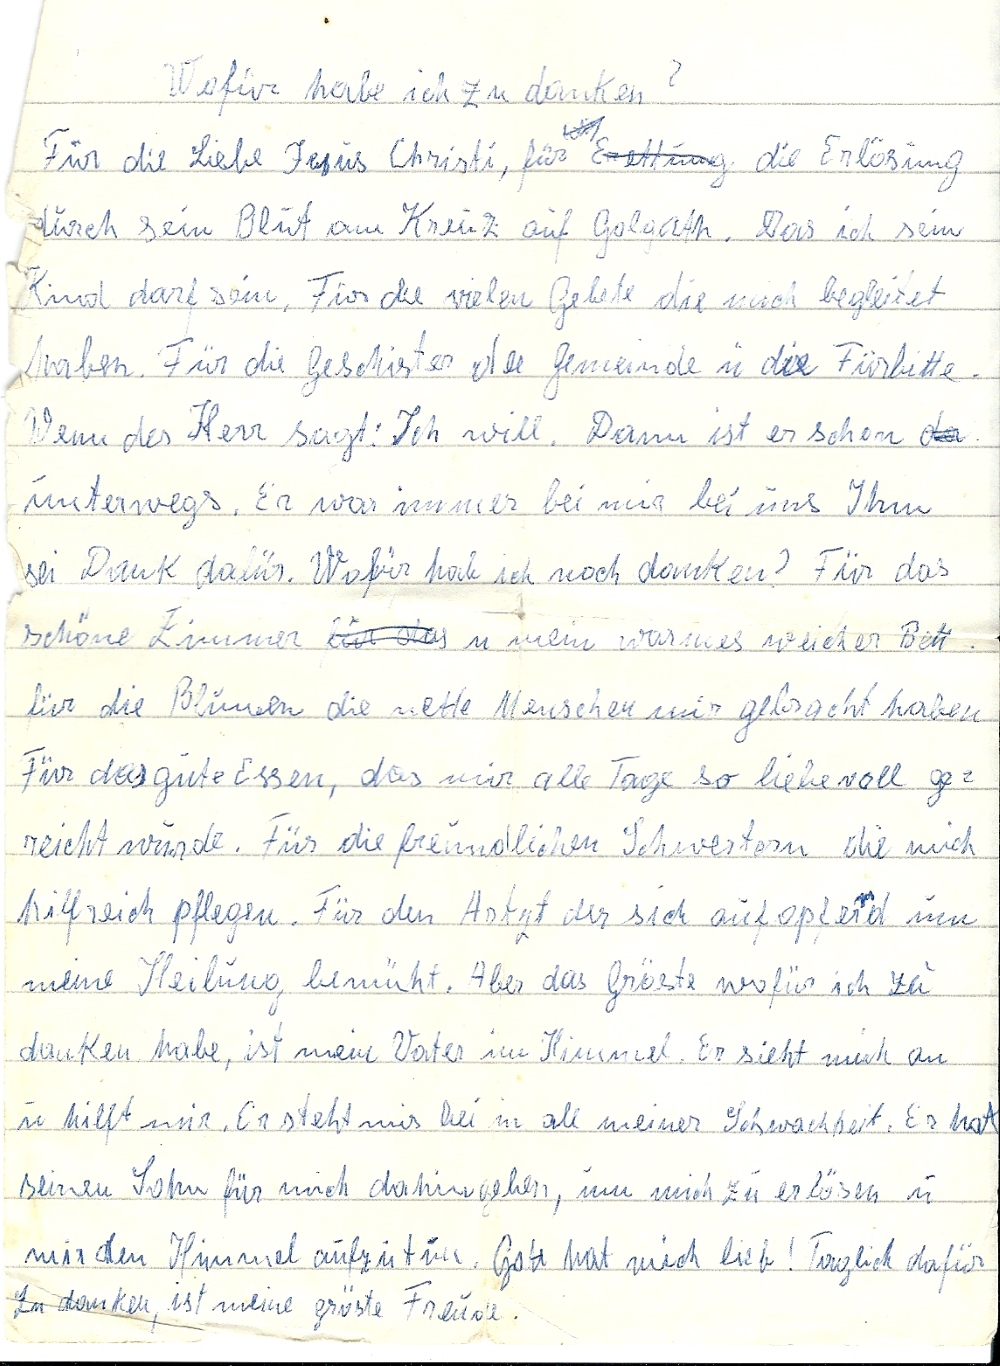 Wofür habe ich zu danken?
Für die Liebe Jesus Christi, für Erettung die Erlösung
durch sein Blut am Kreuz auf Golgath. Das ich sein
Kind darf sein. Für die vielen Gebete die mich begleitet
haben. Für die Geschister der Gemeinde u die Fürbitte.
Wenn der Herr sagt: Ich will. Dann ist er schon da
unterwegs. Er war immer bei mir bei uns Ihm
sei Dank dafür. Wofür hab ich noch danken? Für das
schöne Zimmer für das u mein warmes weicher Bett.
für die Blumen die nette Menschen mir gebracht haben
Für das gute Essen, das mir alle Tage so liebevoll ge=
reicht wurde. Für die freundlichen Schwestern die mich
hilfreich pflegen. Für den Artzt der sich aufopfernd um
meine Heilung bemüht. Aber das Gröste wofür ich zu
danken habe, ist mein Vater im Himmel. Er sieht mich an
u hilft mir. Er steht mir bei in all meiner Schwachheit. Er hat
seinen Sohn für mich dahingeben, um mich zu erlösen u
mir den Himmel aufzutun. Gott hat mich lieb! Täglich dafür
zu danken, ist meine gröste Freude.